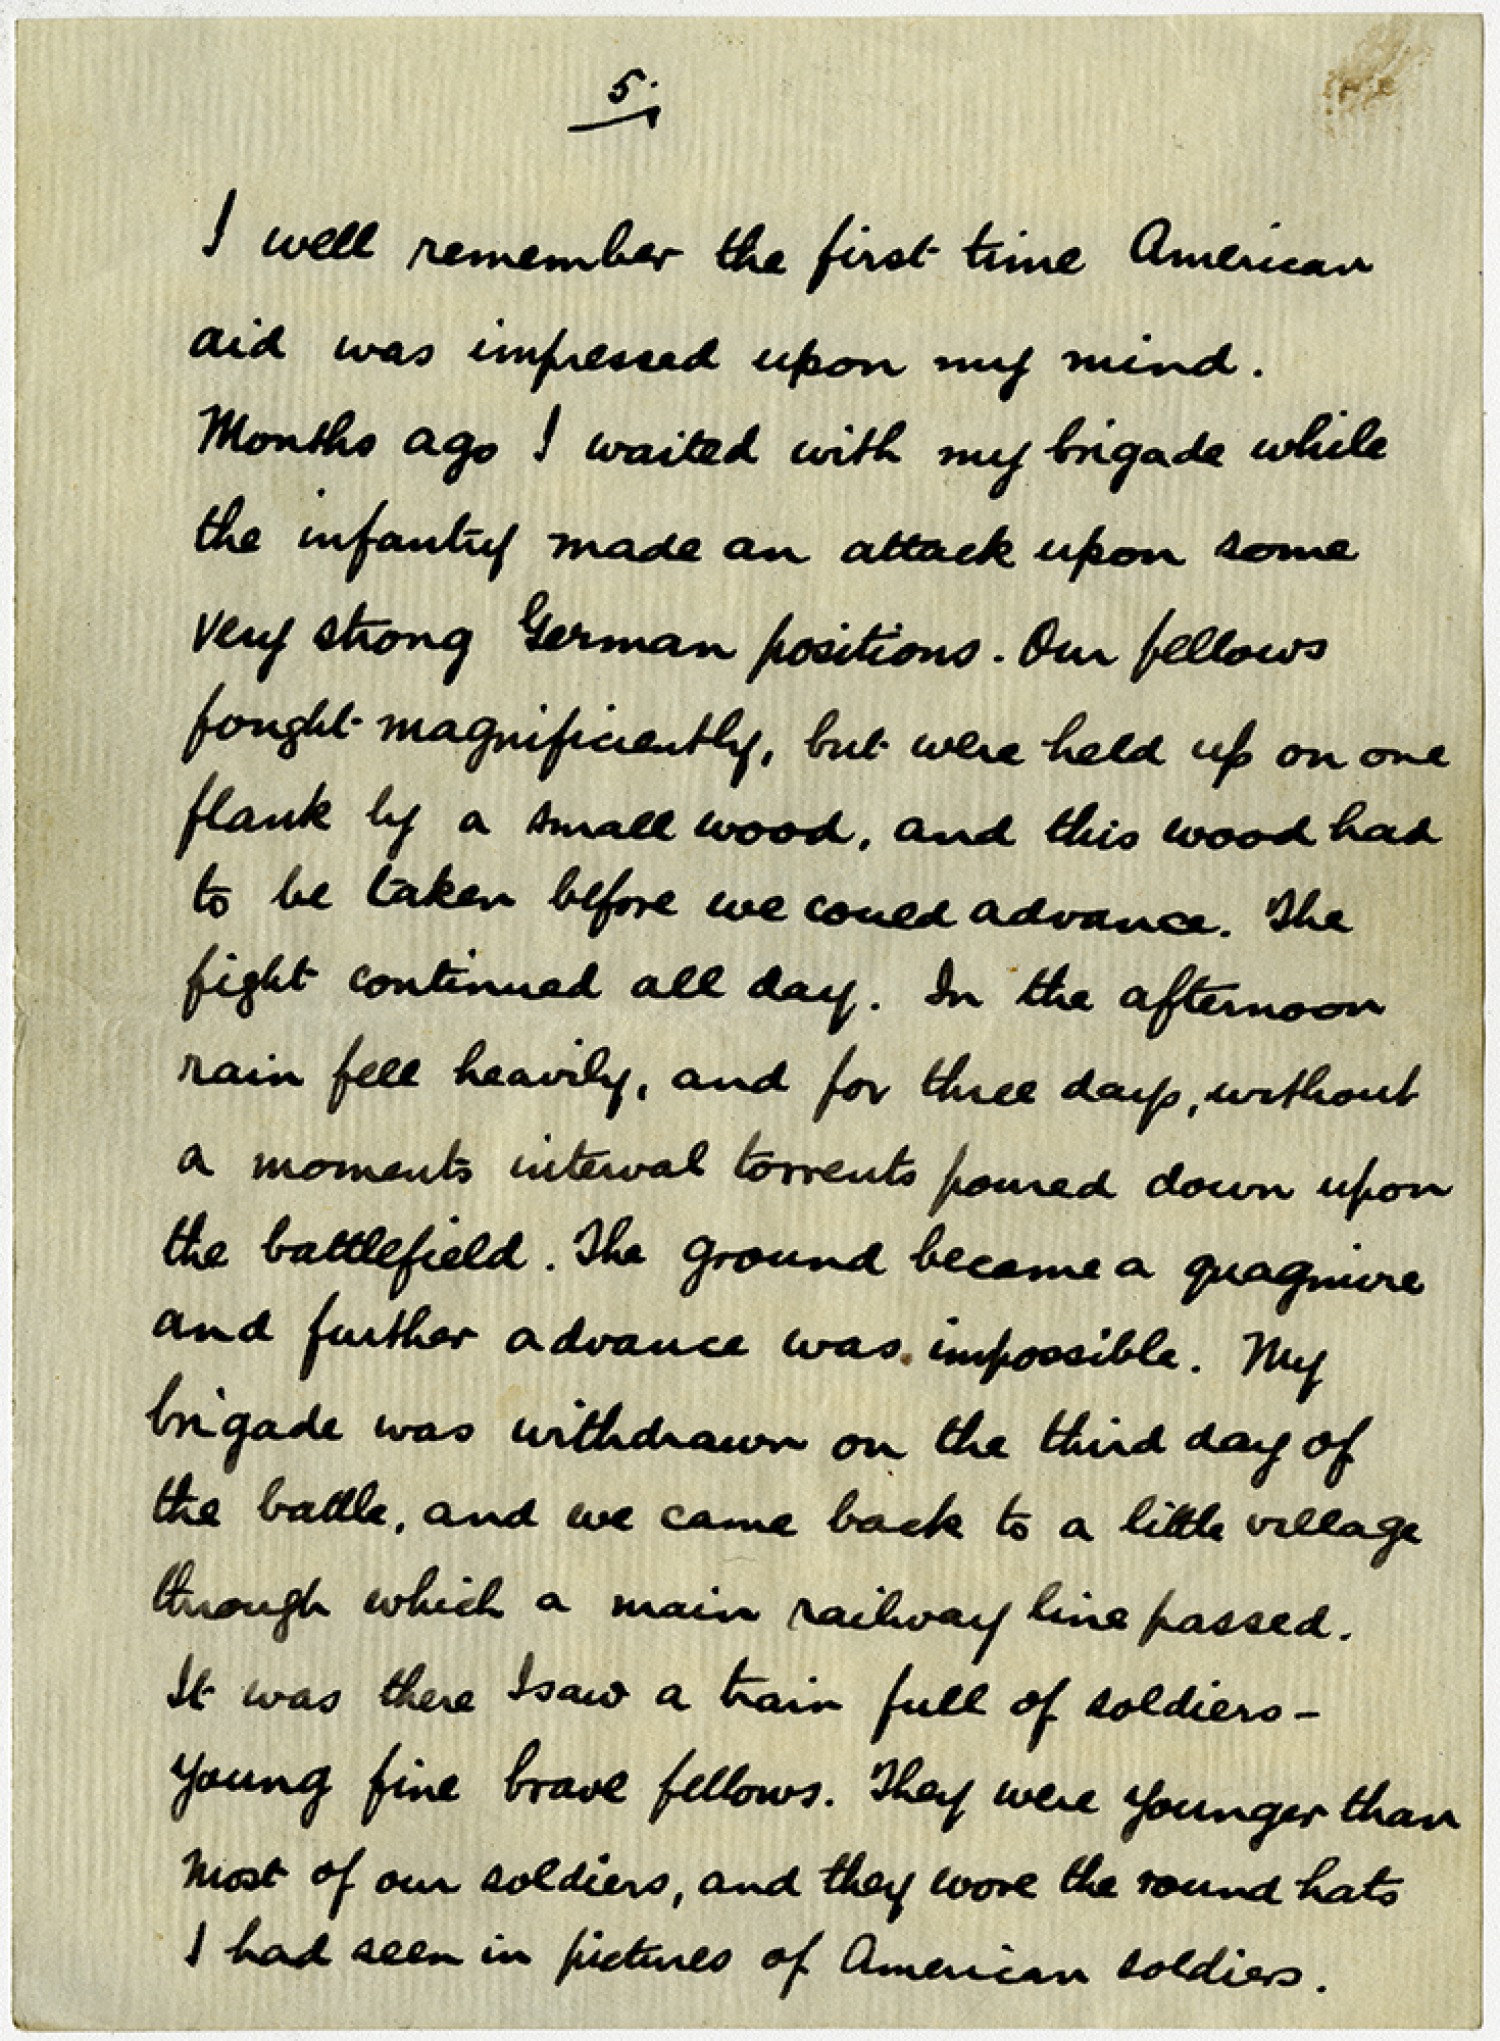 5.
I well remember the first time American
aid was impressed upon my mind.
Months ago I waited with my brigade while
the infantry made an attack upon some
very strong German positions. Our fellows
fought magnificiently, but were held up on one
flank by a small wood, and this wood had
to be taken before we could advance. The
fight continued all day. In the afternoon
rain fell heavily, and for three days, without
a moments interval torrents poured down upon
the battlefield. The ground became a quagmire
and further advance was impossible. My
brigade was withdrawn on the third day of
the battle, and we came back to a little village
through which a main railway line passed.
It was there I saw a train full of soldiers -
young fine brave fellows. They were younger than
most of our soldiers, and they wore the round hats
I had seen in pictures of American soldiers.